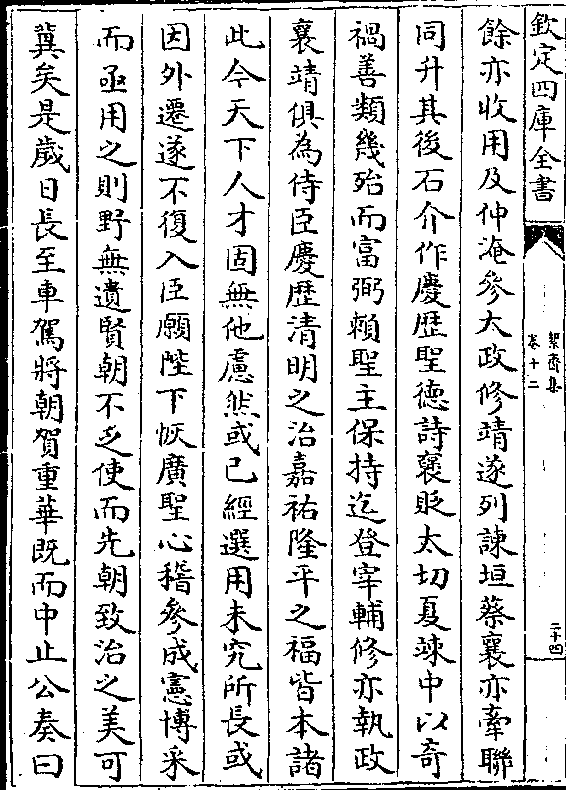 欽定四庫全書
絜齋集
卷十二
二十四
餘亦收用及仲淹參大政修靖遂列諫垣蔡襄亦牽聯
同升其後石介作慶歴聖德詩褒貶太切夏竦中以奇
禍善類幾殆而富弼賴聖主保持迄登宰輔修亦執政
襄靖俱為侍臣慶歴清明之治嘉祐隆平之福皆本諸
此今天下人才固無他慮然或已經選用未究所長或
因外遷遂不復入臣願陛下恢廣聖心稽參成憲博采
而亟用之則野無遺賢朝不乏使而先朝致治之美可
冀矣是歲日長至車駕將朝賀重華既而中止公奏曰